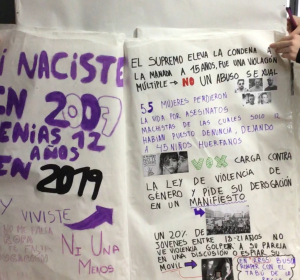 I NACISTE
EN 2007
TENIAS 12
AÑOS
EN 2019
Y VIVISTE
NI UNA
MENOS
EL SUPREMO ELEVA LA CONDENA
LA MANADA A 15 AÑOS, FUE UNA VIOLACIÓN
MÚLTIPLE → NO UN ABUSO SEXUAL
55 MUJERES PERDIERON
LA VIDA POR ASESINATOS
MACHISTAS DE LAS CUALES SOLO 12
HABÍAN PUESTO DENUNCIA, DEJANDO
A 45 NIÑOS HUERFANOS
VOX CARGA CONTRA
LA LEY DE VIOLENCIA DE
GENERO Y PIDE SU DEROGACIÓN
EN UN MANIFIESTO
UN 20% DE
JOVENES ENTRE 18-21 AÑOS NO
VE VIOLENCIA GOLPEAR A SU PAREJA
EN UNA DISCUSIÓN O ESPIAR SU
MOVIL
ROMPER CON EL
TABÚ DE LA